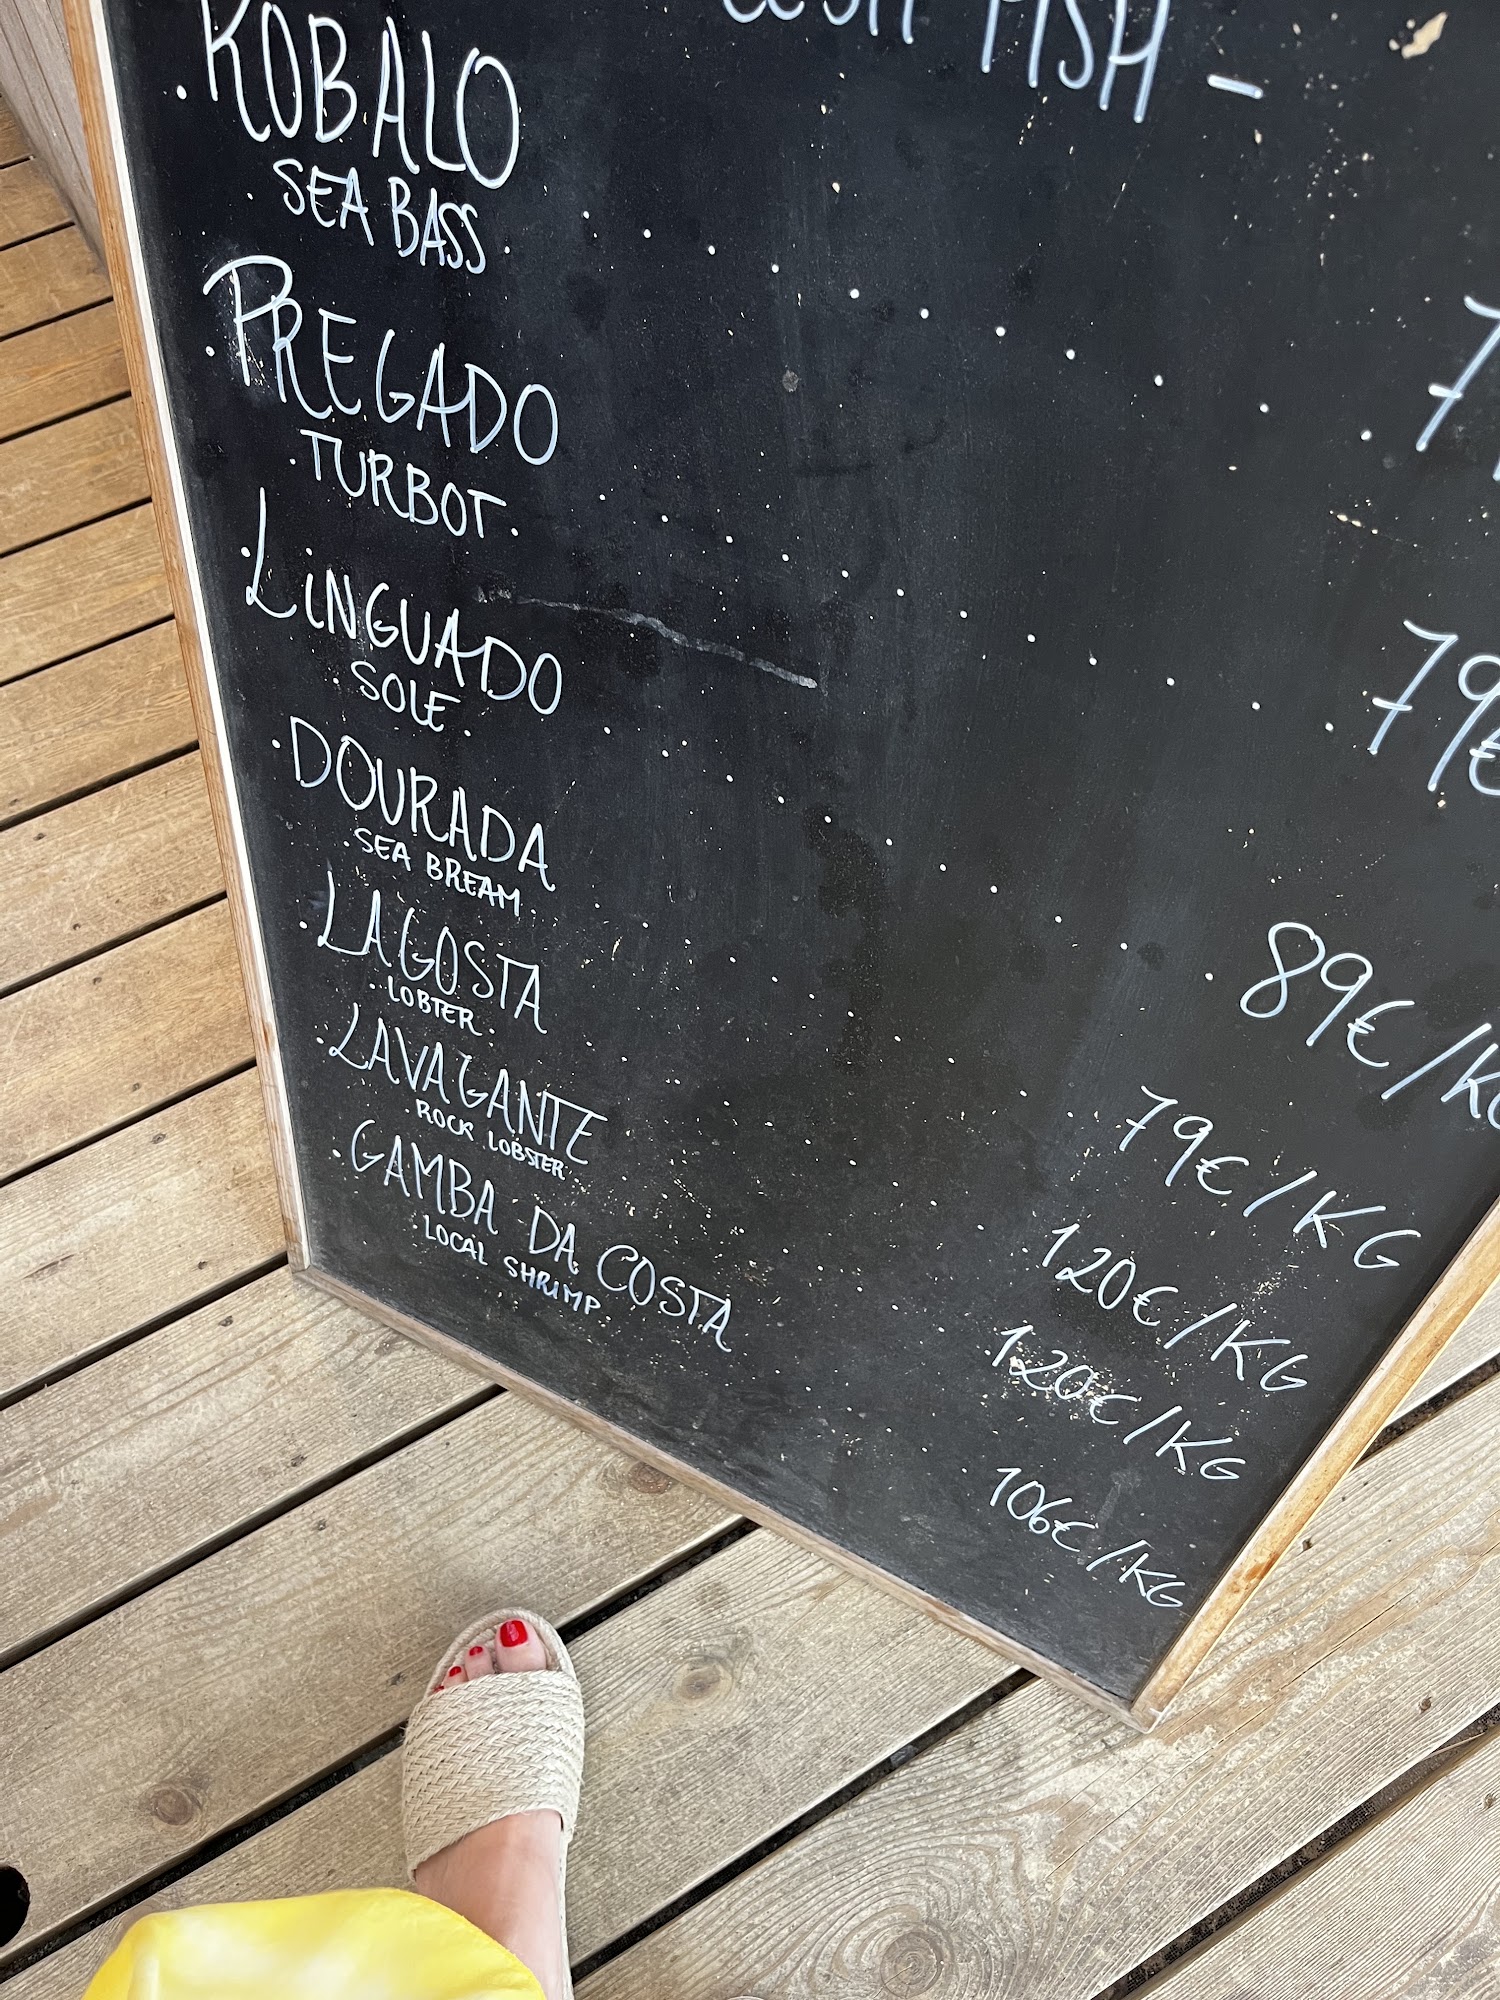 FISH -
ROBALO
SEA BASS
PREGADO
TURBOT
79€
LINGUADO
SOLE
89€/KG
DOURADA
SEA BREAM
79€/KG
LAGOSTA
LOBTER
120€/KG
LAVAGANTE
ROCK LOBSTER
120€/KG
GAMBA DA COSTA
LOCAL SHRIMP
106€/KG